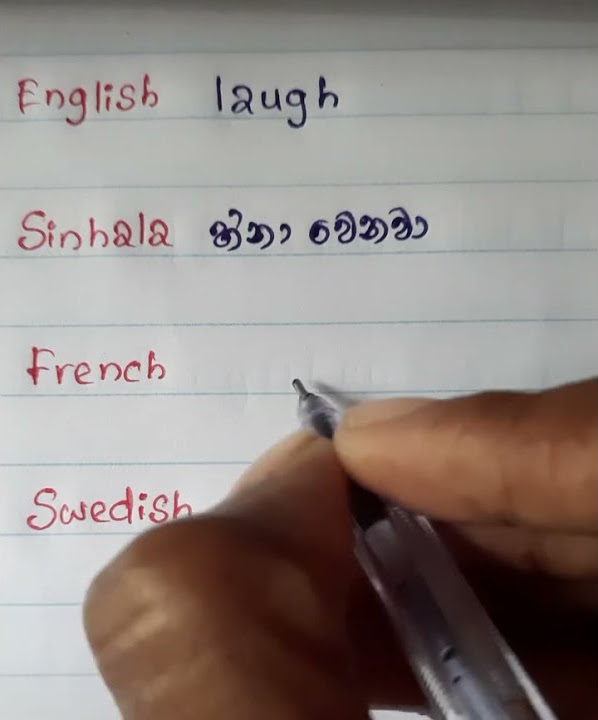 English laugh
Sinhala හිනා වෙනවා
French
Swedish